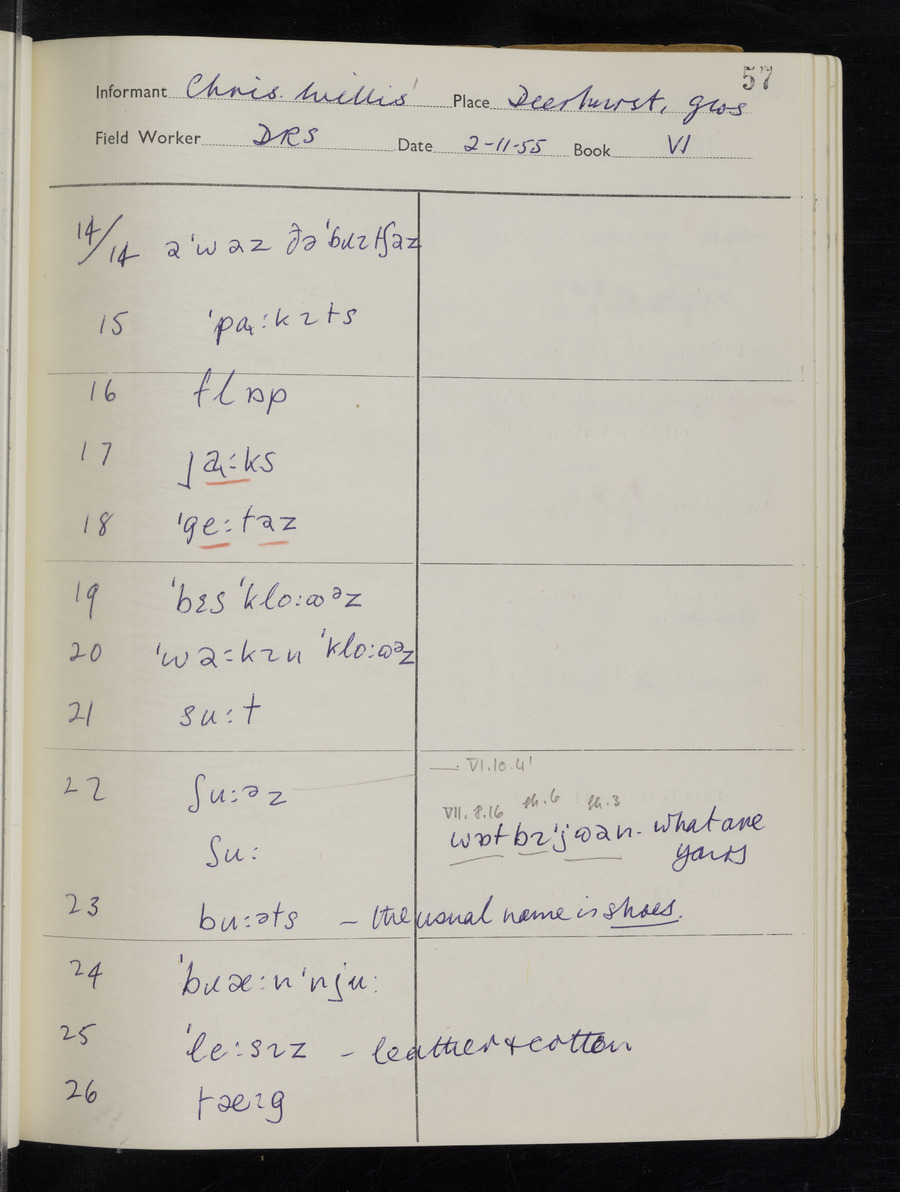 57
Informant Chris Willis Place Deerhurst, Glos
Field Worker DRS Date 2-11-55 Book VI
14/14 ə'wəz ðə'bɹɪtʃəz
15 'pa:kɪts
16 flɒp
17 ja:ks
18 'ge:təz
19 'bɛs 'klo:ʊᵊz
20 'wə:kɪn 'klo:ʊᵊz
21 su:t
22 ʃu:əz
— VI.10.4'
VII.8.16
ʃu:
wɒt bɪ'jʊəɹ - what are
yours
23 bu:əts – the usual name is shoes.
24 'bɹæ:n 'nju:
25 'le:sɪz – leather & cotton
26 tæ:g